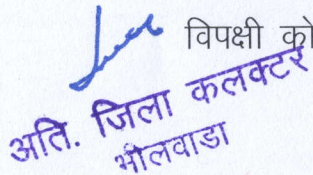 विपक्षी को
अति. जिला कलक्टर
भीलवाडा